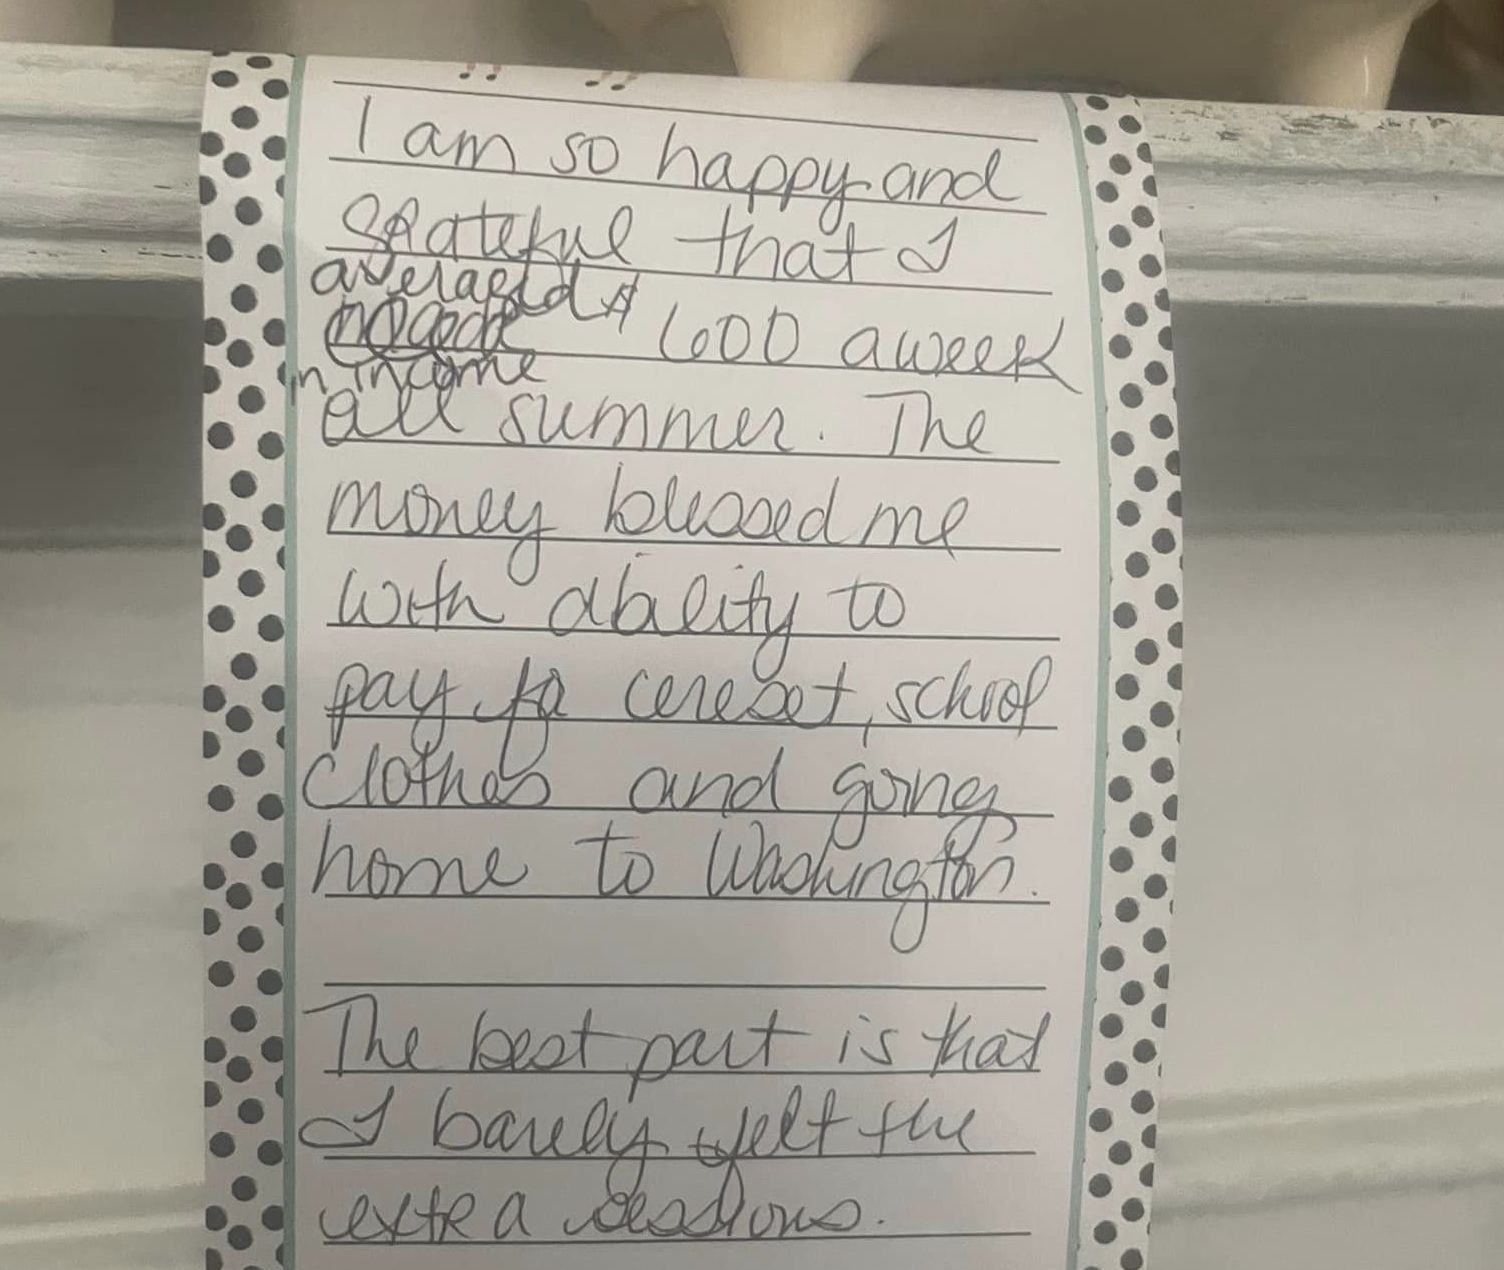 I am so happy and
grateful that I
averaged $
600 a week
in income
all summer. The
money blessed me
with ability to
pay for cereset, school
clothes and going
home to Washington.
The best part is that
I barely felt the
extra sessions.